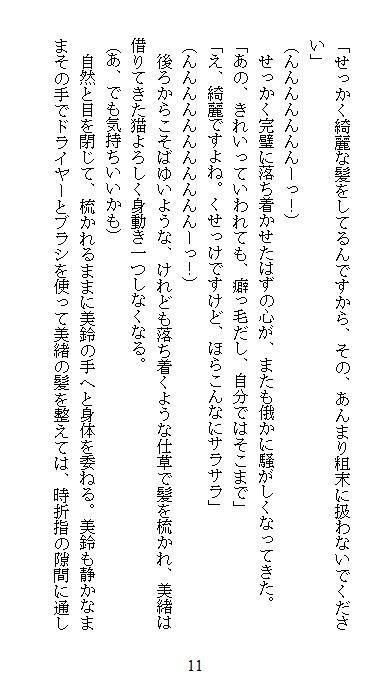 「せっかく綺麗な髪をしてるんですから、その、あんまり粗末に扱わないでくださ
い」
(んんんんんんんーっ！)
　せっかく完璧に落ち着かせたはずの心が、またも俄かに騒がしくなってきた。
「あの、きれいっていわれても、癖っ毛だし、自分ではそこまで」
「え、綺麗ですよね。くせっけですけど、ほらこんなにサラサラ」
(んんんんんんんんんんーっ！)
　後ろからこそばゆいような、けれども落ち着くような仕草で髪を梳かれ、美緒は
借りてきた猫よろしく身動き一つしなくなる。
(あ、でも気持ちいいかも)
　自然と目を閉じて、梳かれるままに美鈴の手へと身体を委ねる。美鈴も静かなま
まその手でドライヤーとブラシを使って美緒の髪を整えては、時折指の隙間に通し
11